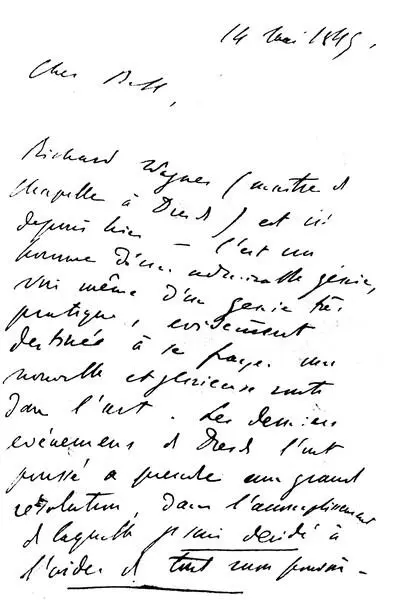 14 Mai 1849.
Cher Bell,
Richard Wagner (maitre d
chapelle à Dresd) est ici
depuis hier — C'est un
homme d'un admirable génie,
oui même d'un génie très
pratique, evidement
destiné à se frayer une
nouvelle et glorieuse route
dans l'art. Les derniers
evénemens d Dresd l'ont
poussé a prendre une grand
resolution, dans l'accomplissement
d laquelle je suis decidé à
l'aider d tout mon pouvoir —